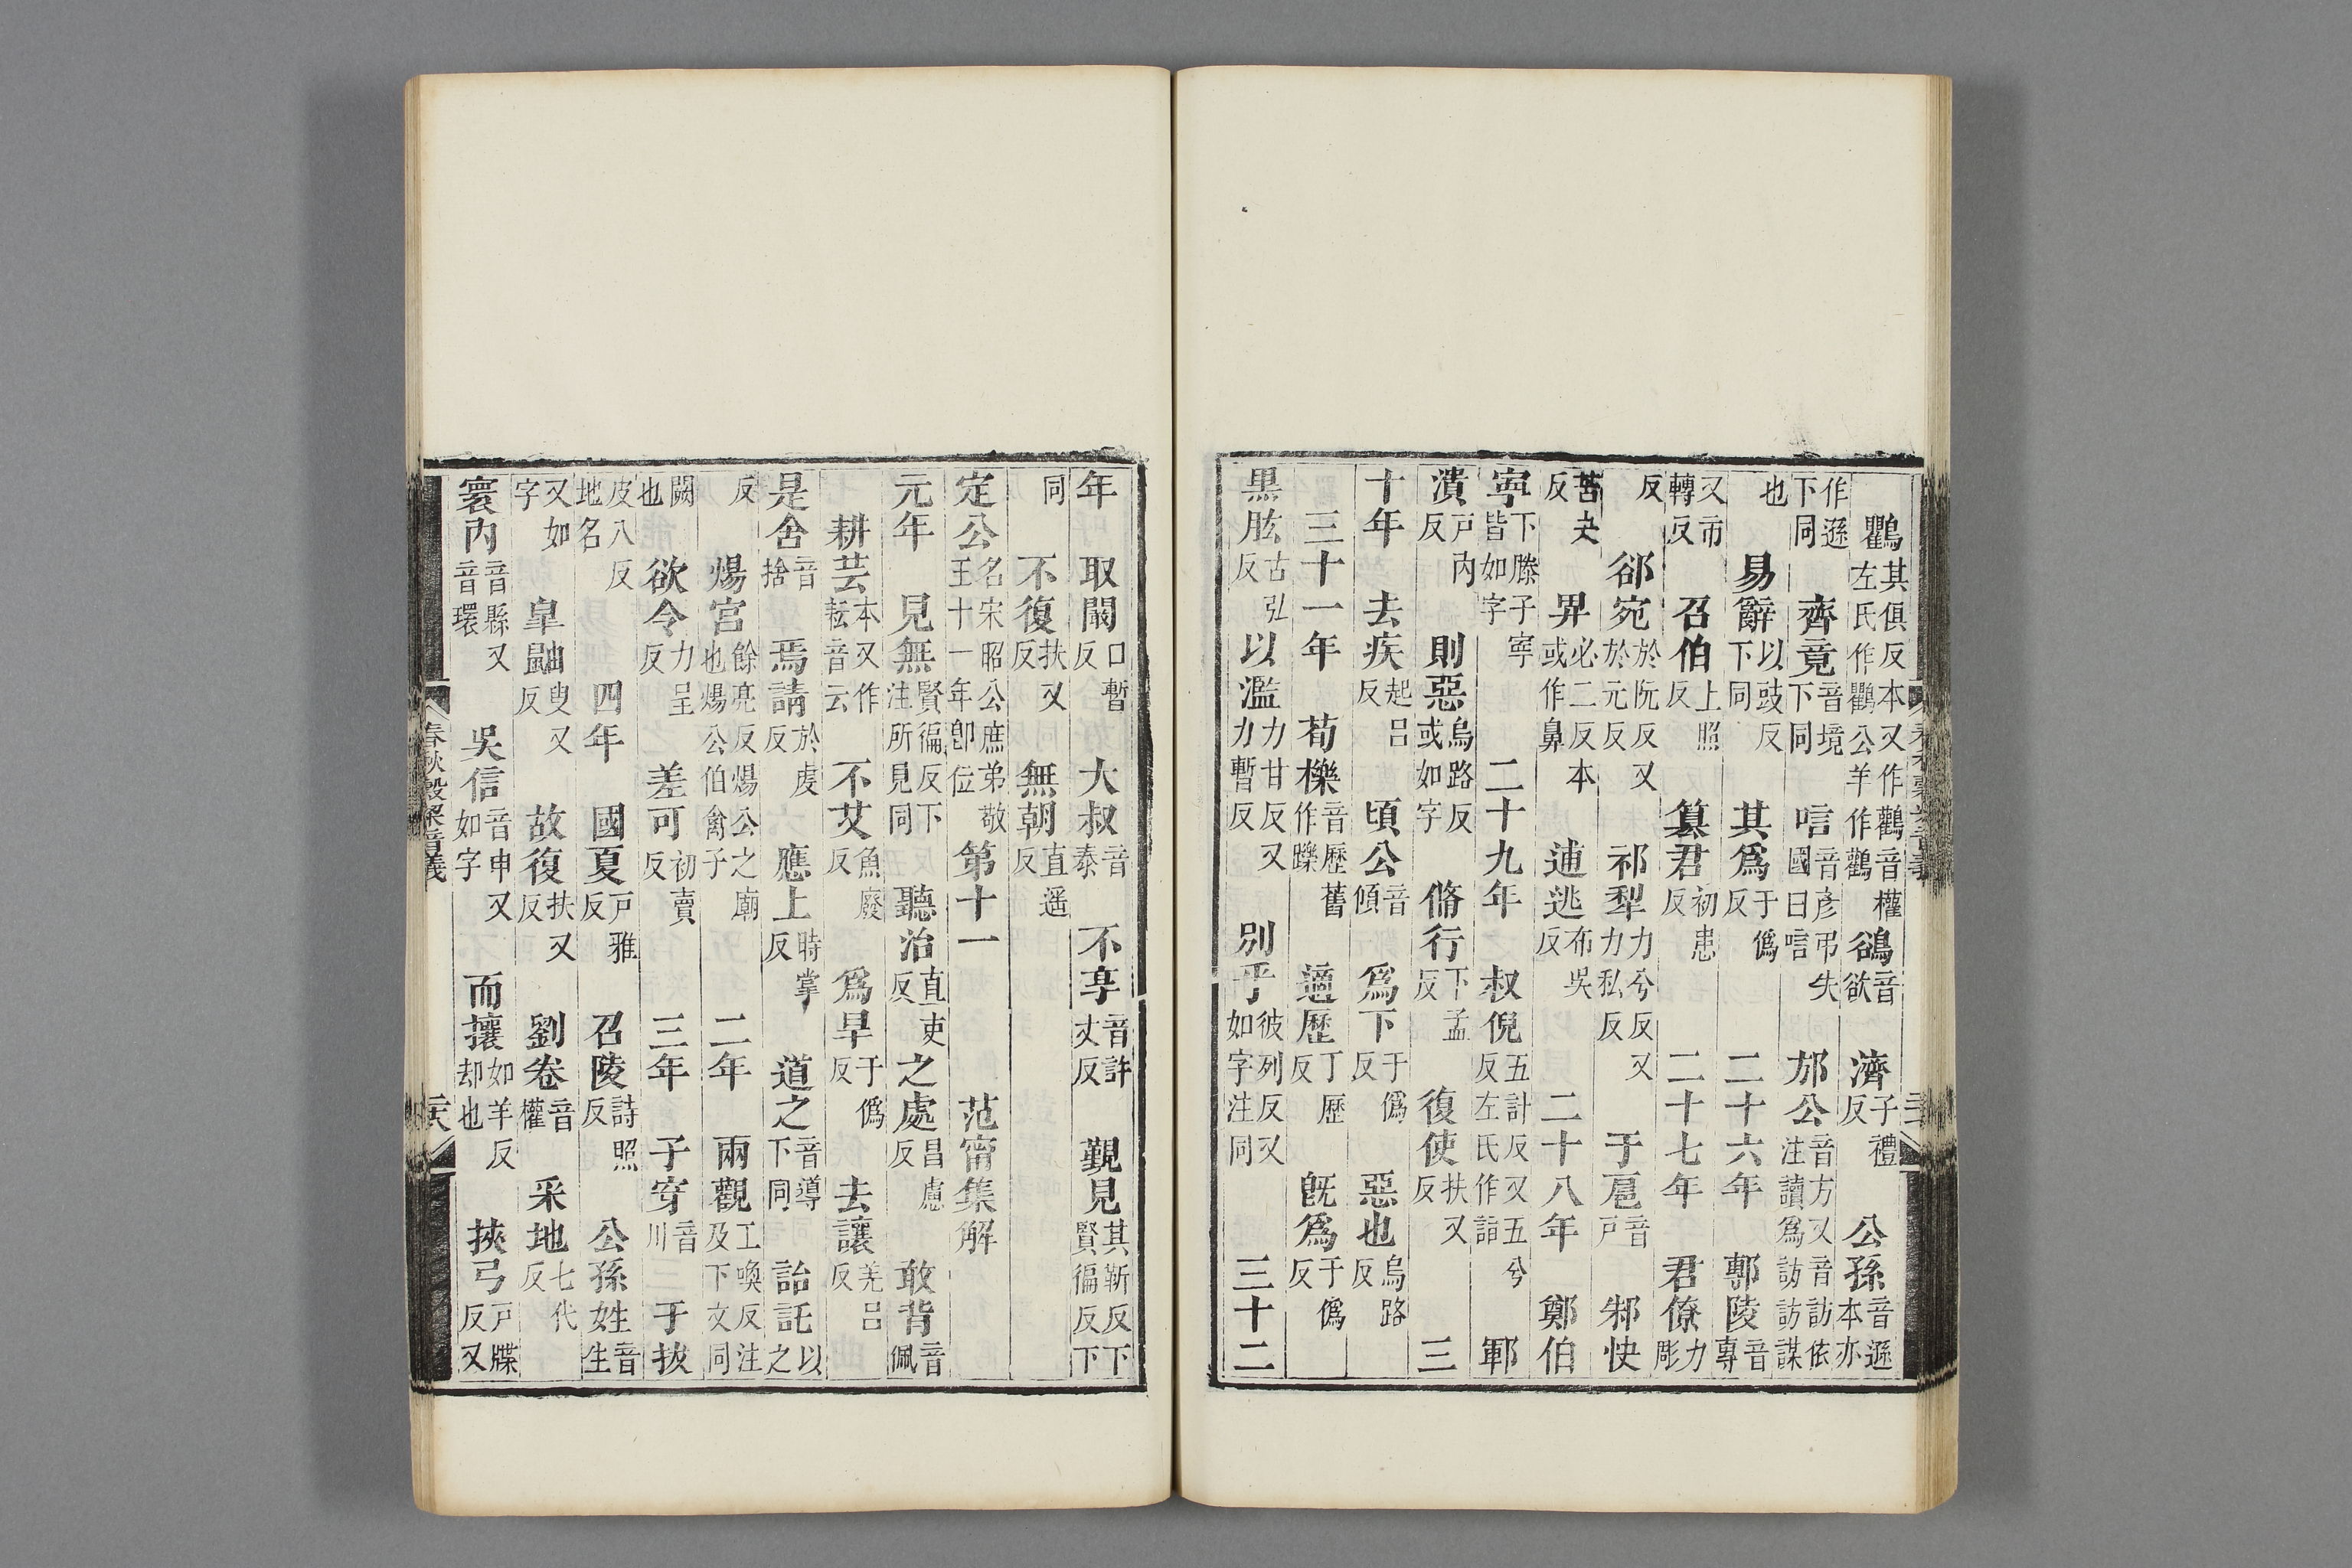 鸜其俱反本又作鸛音權左氏作鸜公羊作鸛鵒音欲 濟子禮反 公孫音遜本亦
作遜下同 齊竟音境下同 唁音彥弔失國曰唁 邡公音方又音訪依注讀爲訪訪謀
也 易辭以豉反下同 其爲于僞反 二十六年 鄟陵音專
又市轉反 召伯上照反 簒君初患反 二十七年 君僚力彫
反 郤宛於阮反又於元反 祁犁力兮反又力私反 于扈音戶 邾快
苦夬反 畀必二反本或作鼻 逋逃布吳反 二十八年 鄭伯
寧下滕子寧皆如字 二十九年 叔倪五計反又五兮反左氏作詣 鄆
潰戶內反 則惡烏路反或如字 脩行下孟反 復使扶又反 三
十年 去疾起呂反 頃公音傾 爲下于僞反 惡也烏路反
三十一年 荀櫟音歷舊作躒 適歷丁歷反 旣爲于僞反
黑肱古弘反 以濫力甘反又力暫反 別乎彼列反又如字注同 三十二
年 取闞口暫反 大叔音泰 不享音許丈反 覲見其靳反下賢徧反下
同 不復扶又反 無朝直遥反
定公名宋昭公庶弟敬王十一年卽位第十一 范甯集解
元年 見無賢徧反下注所見同 聽治直吏反 之處昌慮反 敢背音佩
耕芸本又作耘音云 不艾魚廢反 爲旱于僞反 去讓羌呂反
是舍音捨 焉請於虔反 應上時掌反 道之音導下同 詒託以之
反 煬宮餘亮反煬公之廟也煬公伯禽子 二年 兩觀工喚反注及下文同
闕也 欲令力呈反 差可初賣反 三年 子穿音川 于拔
皮八反地名 四年 國夏戶雅反 召陵詩照反 公孫姓音生
又如字 皐鼬臾又反 故復扶又反 劉卷音權 采地七代反
寰內音縣又音環 吳信音申又如字 而攘如羊反却也 挾弓戶牒反又
春秋穀梁音義